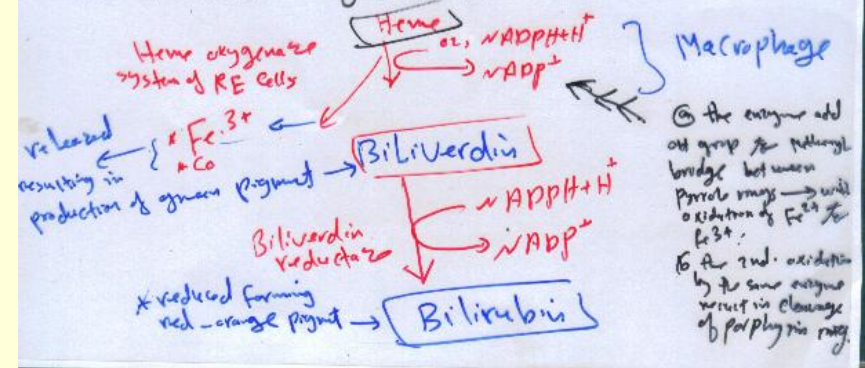 Heme
Heme oxygenase
system of RE Cells
O2, NADPH+H+
NADP+
Macrophage
* Fe.3+
* Co
released
resulting in
production of green pigment
Biliverdin
NADPH+H+
NADP+
Biliverdin
reductase
* reduced forming
red-orange pigmt
Bilirubin
ⓐ the enzyme add
OH group to methenyl
bridge between
Pyrrol rings → with
oxidation of Fe2+ to
Fe3+.
ⓑ the 2nd. oxidation
by the same enzyme
result in cleavage
of porphyrin ring.